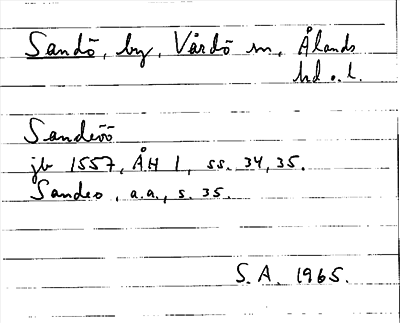 Sandö, by, Vårdö sn, Ålands
hd o. l.
Sandeöö
jb 1557, ÅH 1, ss. 34, 35.
Sandeo, a.a., s. 35.
S. A. 1965.